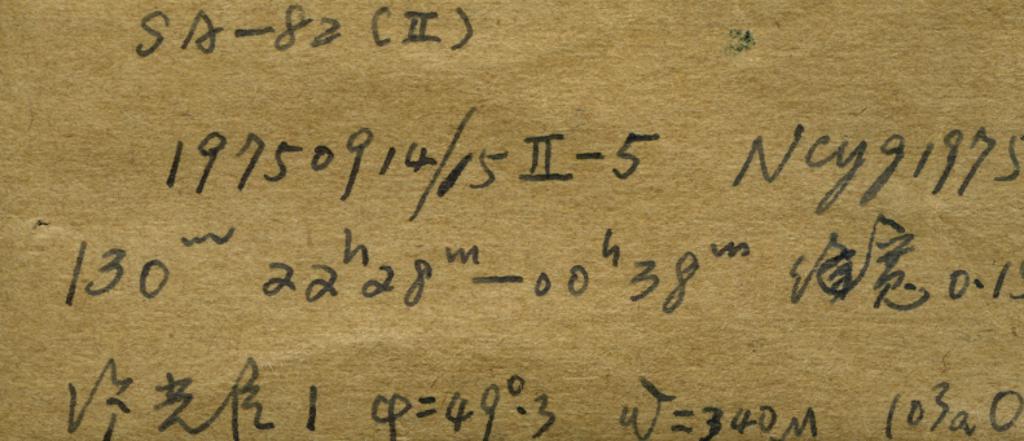 SA-82 (II)
19750914/15 II-5 NCyg1975
130ᵐ 22ʰ28ᵐ-00ʰ38ᵐ 缝宽 0.15
光 1 φ=49°.3 W=340μ 103aO